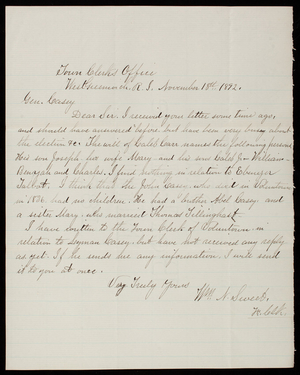 Town Clerk's Office
West Greenwich, R. I. November 18th, 1892.
Gen. Casey
Dear Sir. I received your letter some time ago,
and should have answered before, but have been very busy about
the election &c. The will of Caleb Carr names the following persons
His son Joseph his wife Mary and his sons Caleb Jr William
and Charles. I find nothing in relation to Ebenezer
I think that the John Casey who died in
in had no children. He had a brother Abel Casey and
a sister Mary who married Thomas Tillinghast.
I have written to the Town Clerk of Voluntown in
relation to Casey, but have not received any reply
as yet. If he sends me any information I will send
it to you at once.
Very Truly Yours
Wm N. Sweet.